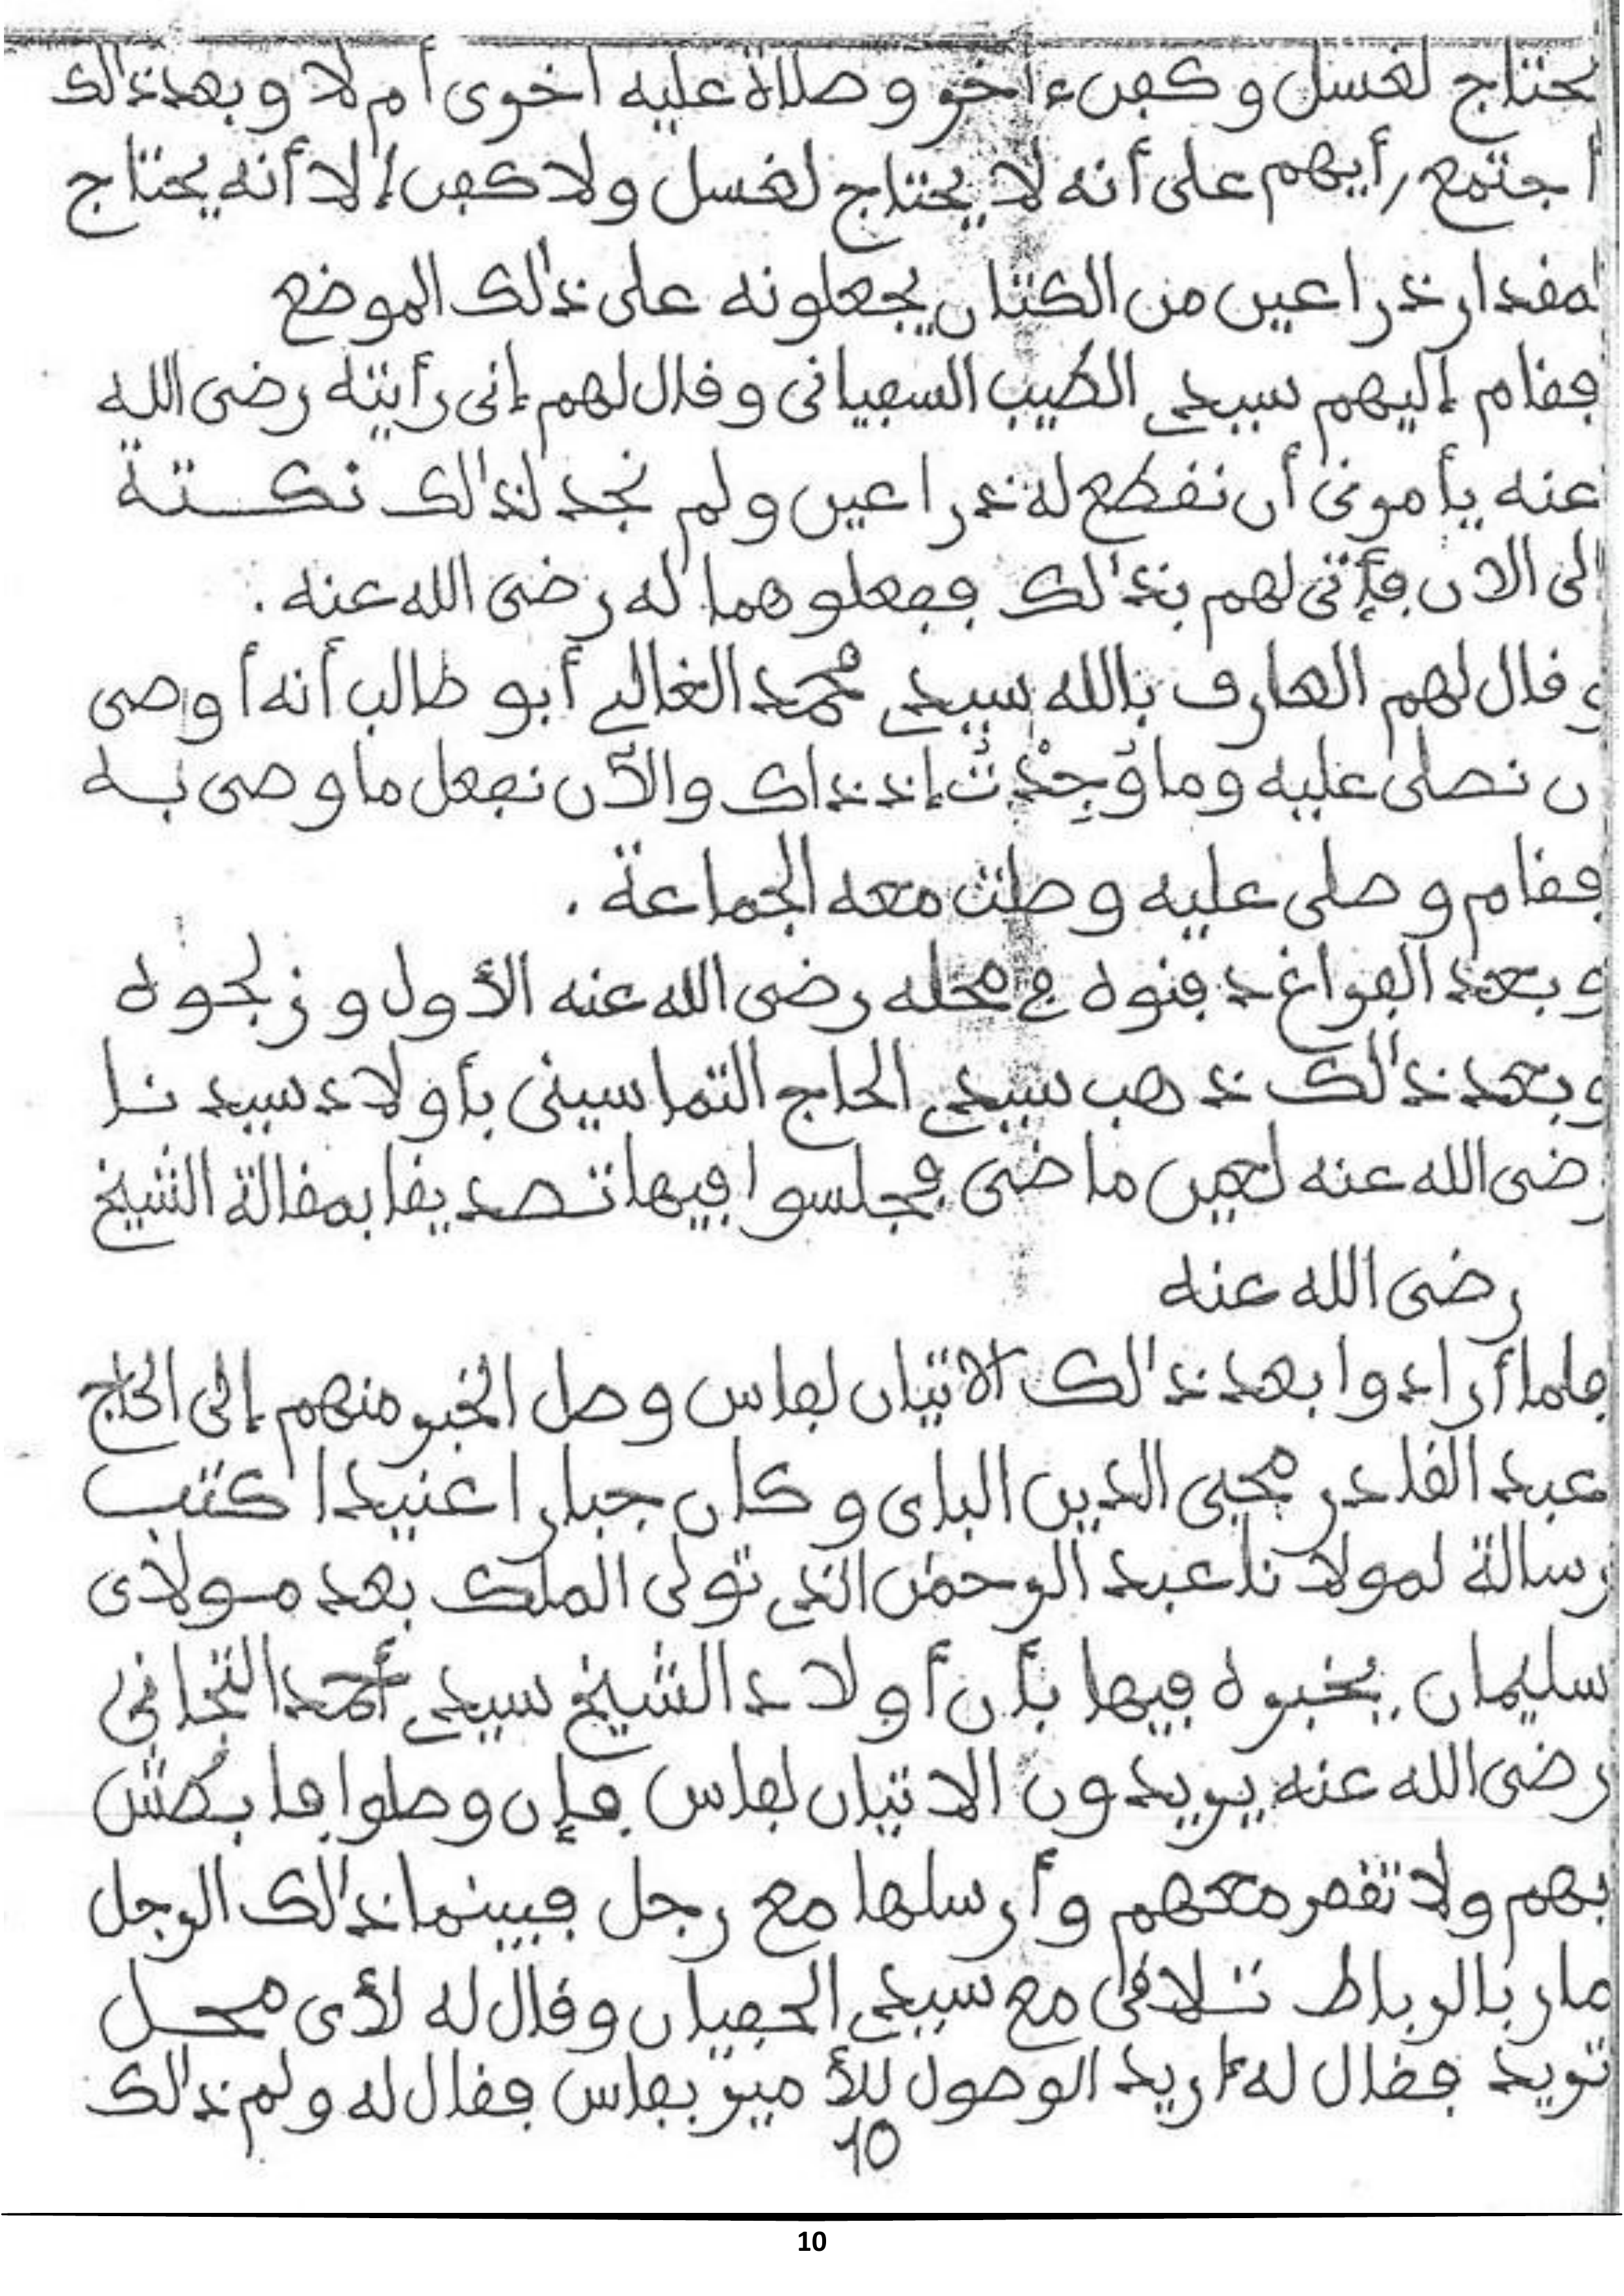 يحتاج لغسل وكفن ءاخر وصلاة عليه أخرى أم لا وبعد ذالك
اجتمع رأيهم على أنه لا يحتاج لغسل ولا كفن إلا أنه يحتاج
لمقدار ذراعين من الكتان يجعلونه على ذالك الموضع
فقام إليهم سيدي الطيب السفياني وقال لهم إني رأيته رضى الله
عنه يأمرني أن نقطع له ذراعين ولم نجد لذالك نكتة
إلى الآن فأتى لهم بذالك ففعلوهما له رضى الله عنه .
وقال لهم العارف بالله سيدي محمد الغالي أبو طالب أنه أوصى
أن نصلى عليه وما وُجِدْتُ إذ ذاك والآن نفعل ما وصى به
فقام وصلى عليه وصلت معه الجماعة .
وبعد الفراغ دفنوه في محله رضى الله عنه الأول وزلجوه
وبعد ذالك ذهب سيدي الحاج التماسيني بأولاد سيدنا
رضى الله عنه لعين ماضى فجلسوا فيها تصديقا بمقالة الشيخ
رضى الله عنه
فلما أرادوا بعد ذالك الاتيان لفاس وصل الخبر منهم إلى الحاج
عبد القادر محيى الدين الباى وكان جبارا عنيدا كتب
رسالة لمولانا عبد الرحمن الذي تولى الملك بعد مولاى
سليمان يخبره فيها بأن أولاد الشيخ سيدي أحمد التجاني
رضى الله عنه يريدون الاتيان لفاس فإن وصلوا فابطش
بهم ولا تقصر معهم وأرسلها مع رجل فبينما ذالك الرجل
مار بالرباط تلاقى مع سيدي الحفيان وقال له لأى محل
تريد فقال له أريد الوصول للأمير بفاس فقال له ولم ذالك
10
10